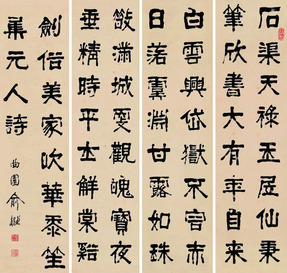 石渠天祿五居仙秉
筆欣書大有年自來
白雲興岱嶽不容赤
日落虞淵甘露如珠
滿城觀魄寶夜
垂精時平士鮮棠谿
劍俗美家吹華黍笙
元人詩
曲園俞樾